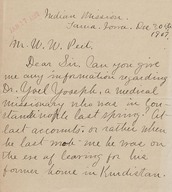 Indian Mission.
Tama, Iowa, Dec 20th
1907.
Mr. W. W. Peet.
Dear Sir, Can you give
me any information regarding
Dr. Yoel Yoseph, a medical
missionary who was in Con-
stantinople last spring. At
last accounts, or rather when
he last wrote me he was on
the eve of leaving for his
former home in Kurdistan.